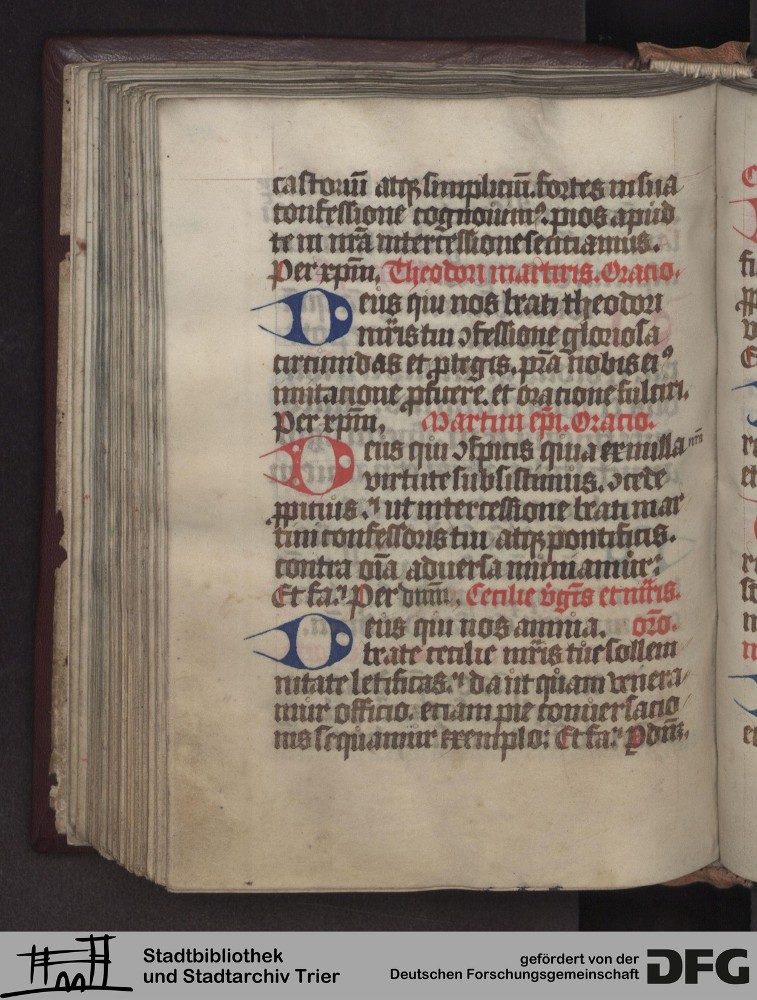 castoriū atq; simpliciū. fortes in sua
confessione cognouim⁹. pios apud
te in nr̄a intercessione sentiamus.
Per xp̄m. Theodori martiris. Oratio.
Deus qui nos beati theodori
mr̄is tui ↄfessione gloriosa
circumdas et ꝓtegis. pr̄a nobis ei⁹
imitacione ꝓficere. et oracione fulciri.
Per xp̄m. Martini ep̄i. Oratio.
Deus qui ↄspicis quia ex nulla nr̄a
virtute subsistimus. ↄcede
ꝓpicius. ut intercessione beati mar
tini confessoris tui atq; pontificis.
contra oīa aduersa muniamur.
Et fa. Per dnm. Cecilie v̄gīs et mr̄is.
Deus qui nos annua. orō.
beate cecilie mr̄is tue sollem
nitate letificas. da ut quam venera
mur officio. eciam pie conuersacio
nis sequamur exemplo. Et fa. P dnm̄.
Stadtbibliothek
und Stadtarchiv Trier
gefördert von der
Deutschen Forschungsgemeinschaft
DFG